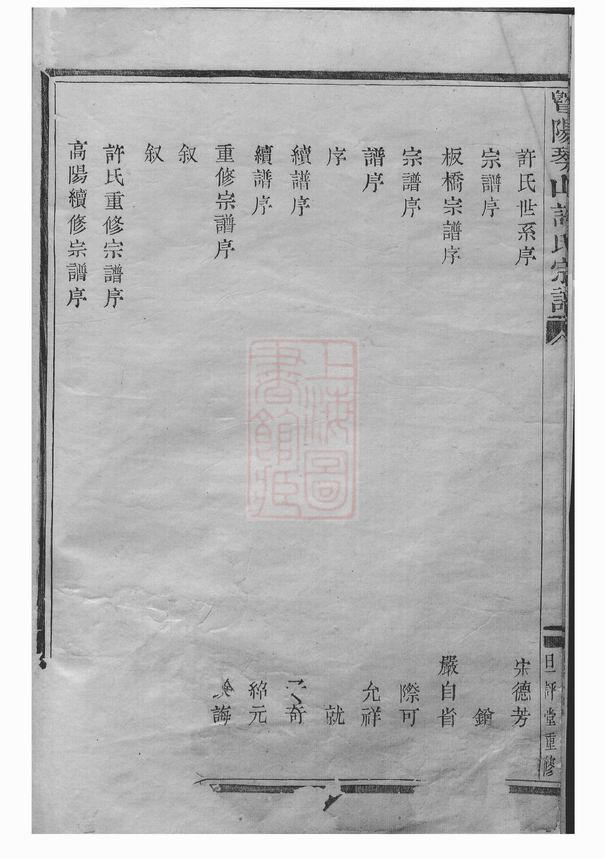 暨陽琴山許氏宗譜
日評堂重修
許氏世系序 宋德芳
宗譜序 鑰
板橋宗譜序 嚴自省
宗譜序 際可
譜序 允祥
序 就
續譜序 奇
續譜序 紹元
重修宗譜序 誨
叙
叙
許氏重修宗譜序
高陽續修宗譜序
上海圖書館藏